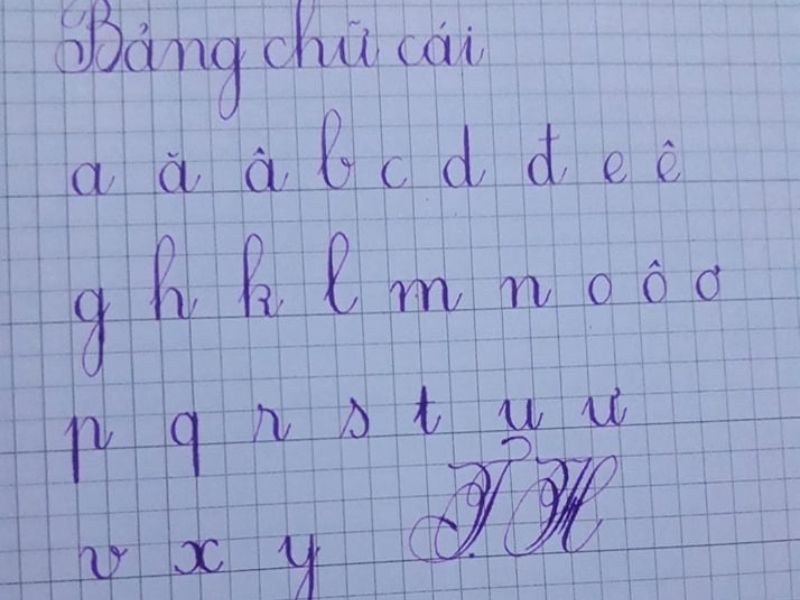 Bảng chữ cái
a ă â b c d đ e ê
g h k l m n o ô ơ
p q r s t u ư
v x y